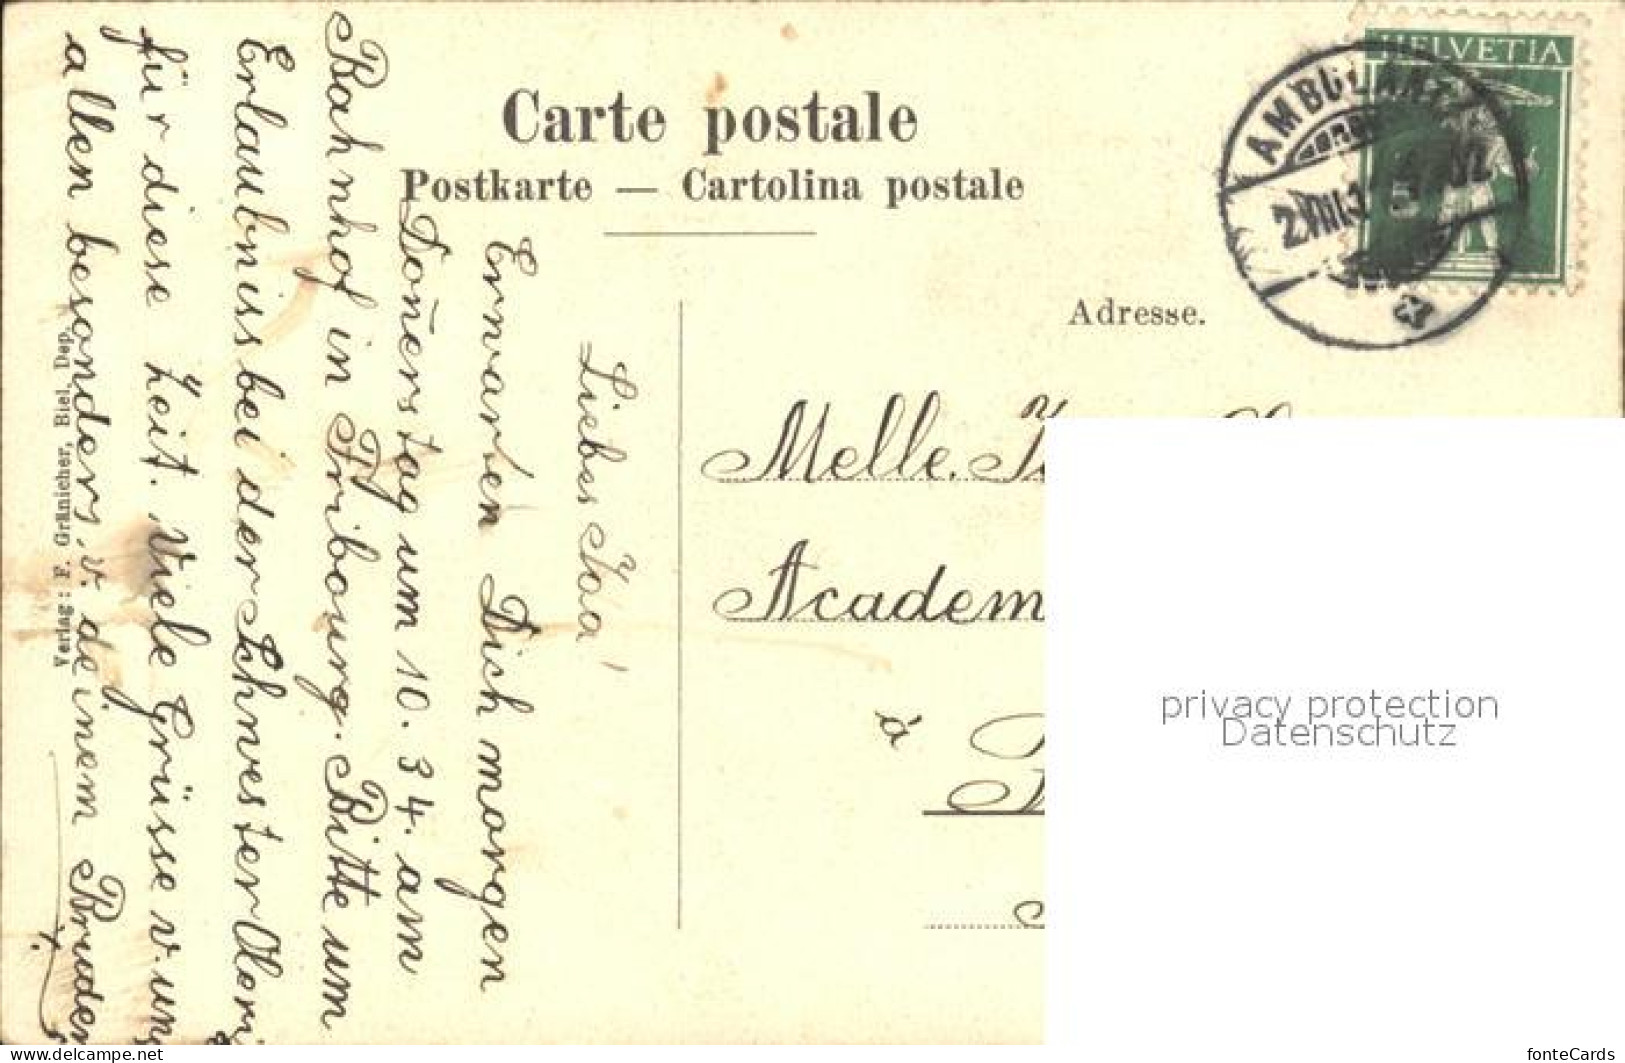 Carte postale
Postkarte — Cartolina postale
Adresse.
HELVETIA
AMBULANT
Melle.
Academ
à
Liebes Ida!
Erwarten Dich morgen
Doñerstag um 10.34. am
Bahnhof in Fribourg. Bitte um
Erlaubniss bei der Schwester Oberi
für diese Zeit. Viele Grüsse v. uns
allen besonders, v. deinem Bruder
Verlag: F. Gränicher, Biel. Dep.
privacy protection
Datenschutz
www.delcampe.net
fonteCards